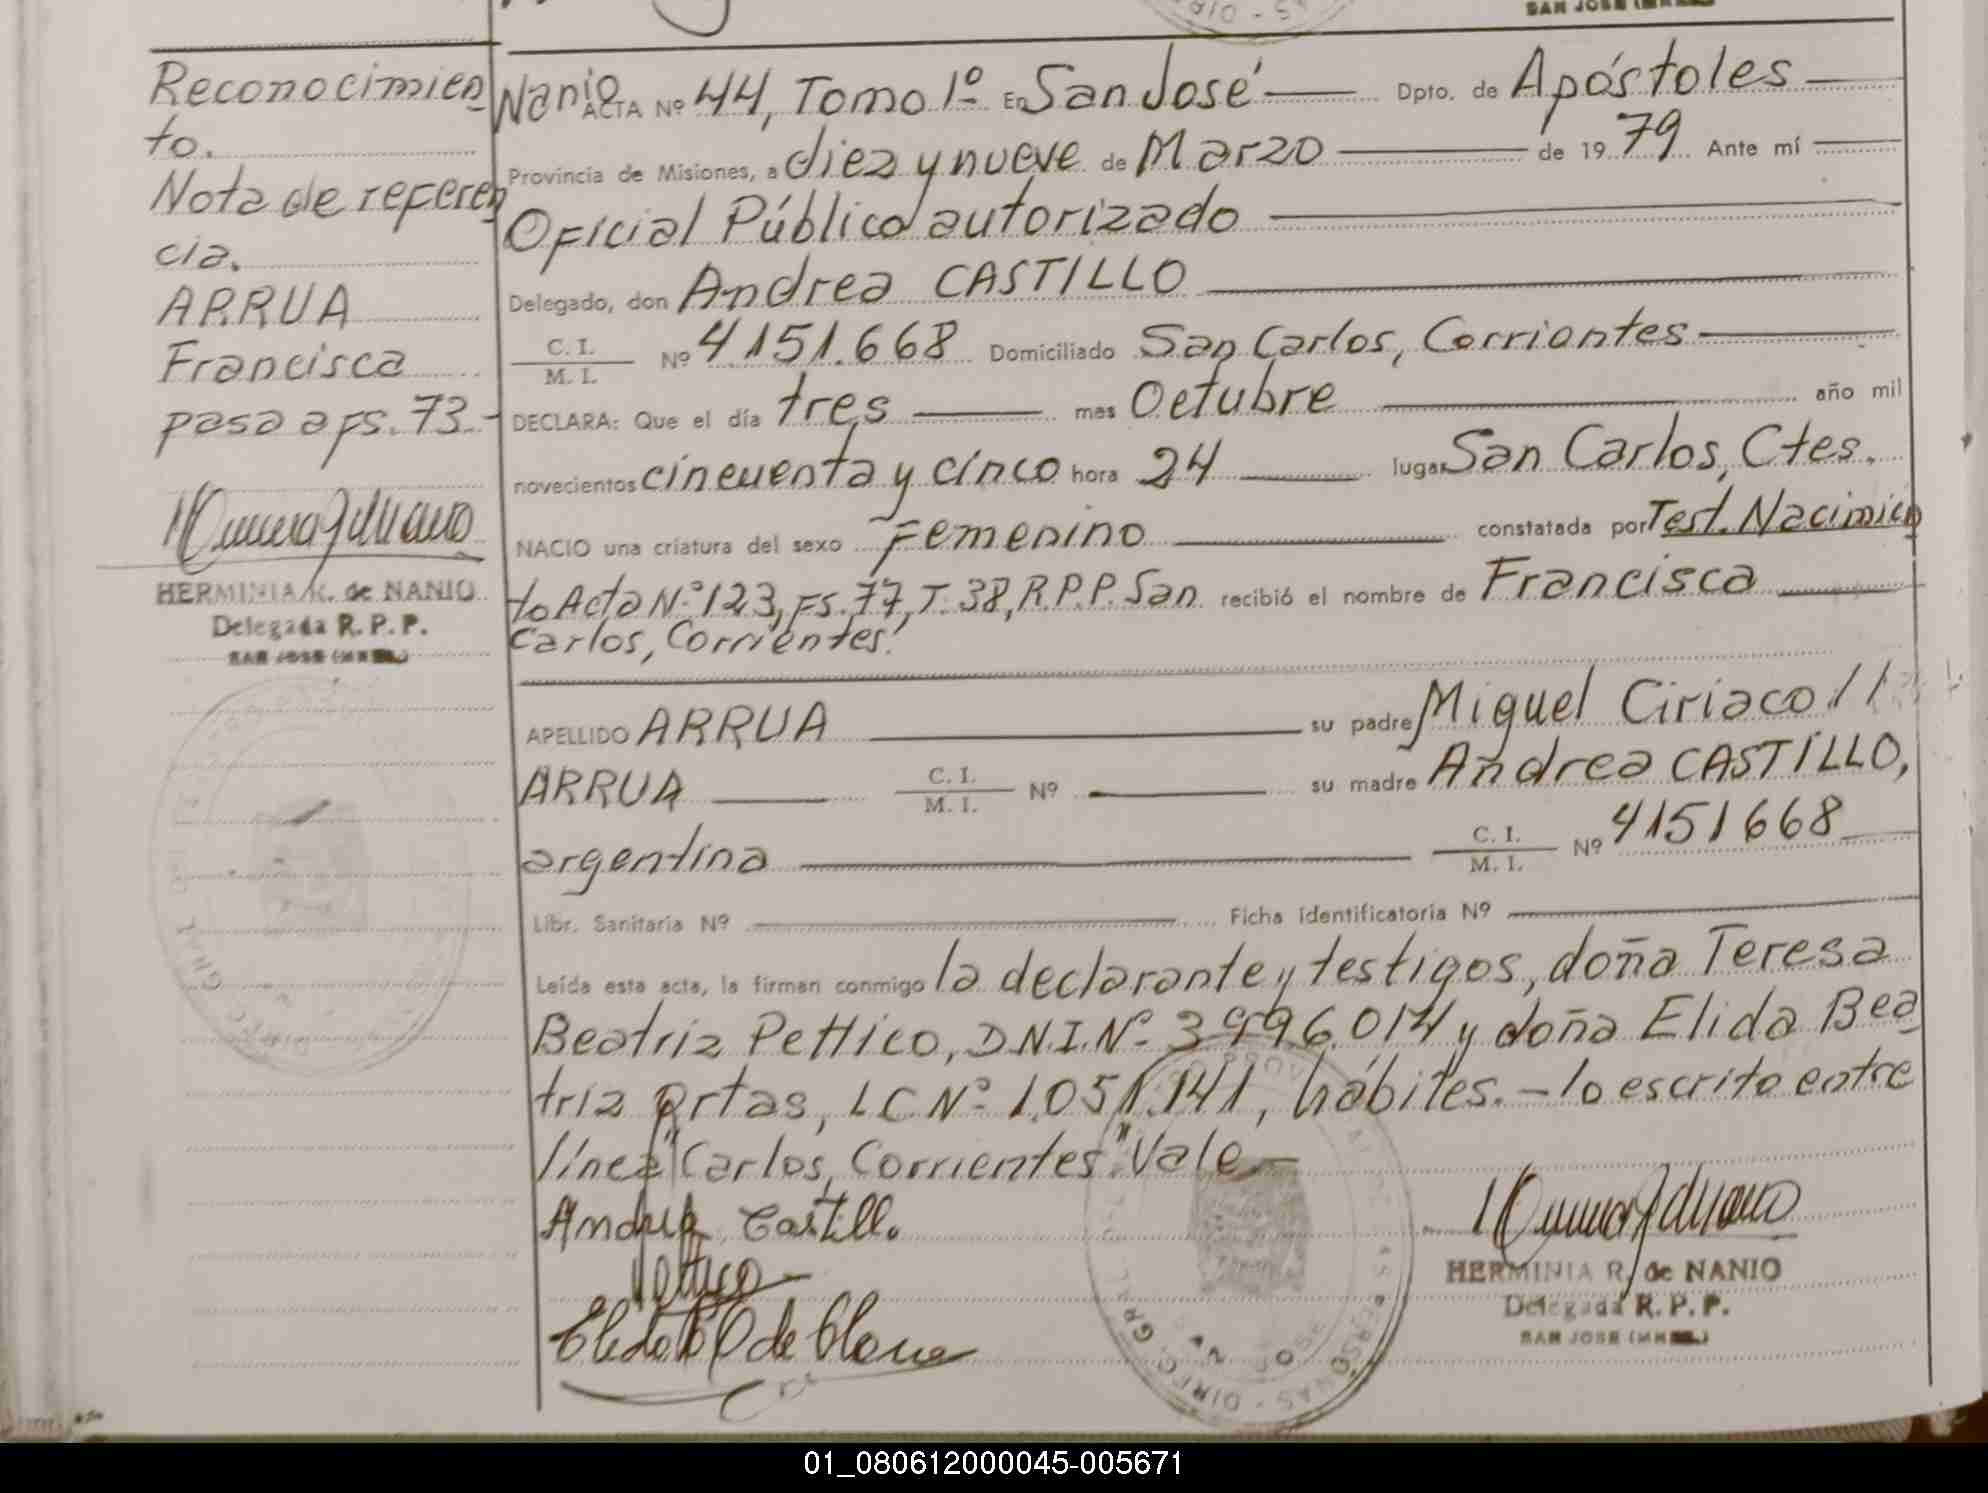 SAN JOSE (MNES.)
Reconocimien
to.
Nota de referen
cia.
ARRUA
Francisca
pasa a fs. 73.-
HERMINIA R. de NANIO
Delegada R. P. P.
SAN JOSE (MNES.)
Nanio
ACTA Nº 44, Tomo 1º En San José Dpto. de Apóstoles
Provincia de Misiones, a diez y nueve de Marzo de 1979 Ante mí
Oficial Público autorizado
Delegado, don Andrea CASTILLO
C. I. / M. I. Nº 4151.668 Domiciliado San Carlos, Corrientes
DECLARA: Que el día tres mes Octubre año mil
novecientos cincuenta y cinco hora 24 lugar San Carlos, Ctes.
NACIO una criatura del sexo Femenino constatada por Test. Nacimien
to Acta N.º 123, fs. 77, T. 38, R.P.P. San recibió el nombre de Francisca
Carlos, Corrientes.
APELLIDO ARRUA su padre Miguel Ciriaco //
ARRUA C. I. / M. I. Nº su madre Andrea CASTILLO,
argentina C. I. / M. I. Nº 4151668
Libr. Sanitaria Nº Ficha identificatoria Nº
Leída esta acta, la firman conmigo la declarante y testigos, doña Teresa
Beatriz Pettico, D.N.I. Nº 3.996.014 y doña Elida Bea
triz Ortas, L.C. Nº 1.051.141, hábiles. - lo escrito entre
línea "Carlos, Corrientes" Vale.-
Andrea Castillo
HERMINIA R. de NANIO
Delegada R. P. P.
SAN JOSE (MNES.)
01_080612000045-005671